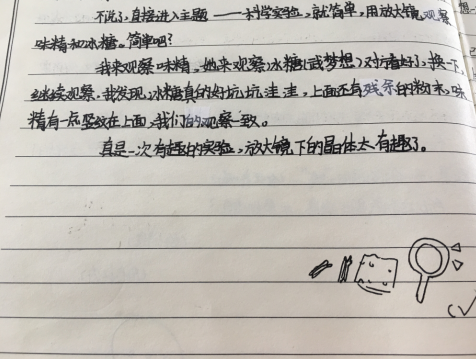 不说了,直接进入主题——科学实验,就简单,用放大镜观察
味精和冰糖。简单吧?
我来观察味精,她来观察冰糖(或梦想)对方看好了,换一下
继续观察,我发现,冰糖真的好坑坑洼洼,上面还有残余的粉末,味
精有一点竖纹在上面,我们的观察一致。
真是一次有趣的实验,放大镜下的晶体太有趣了。